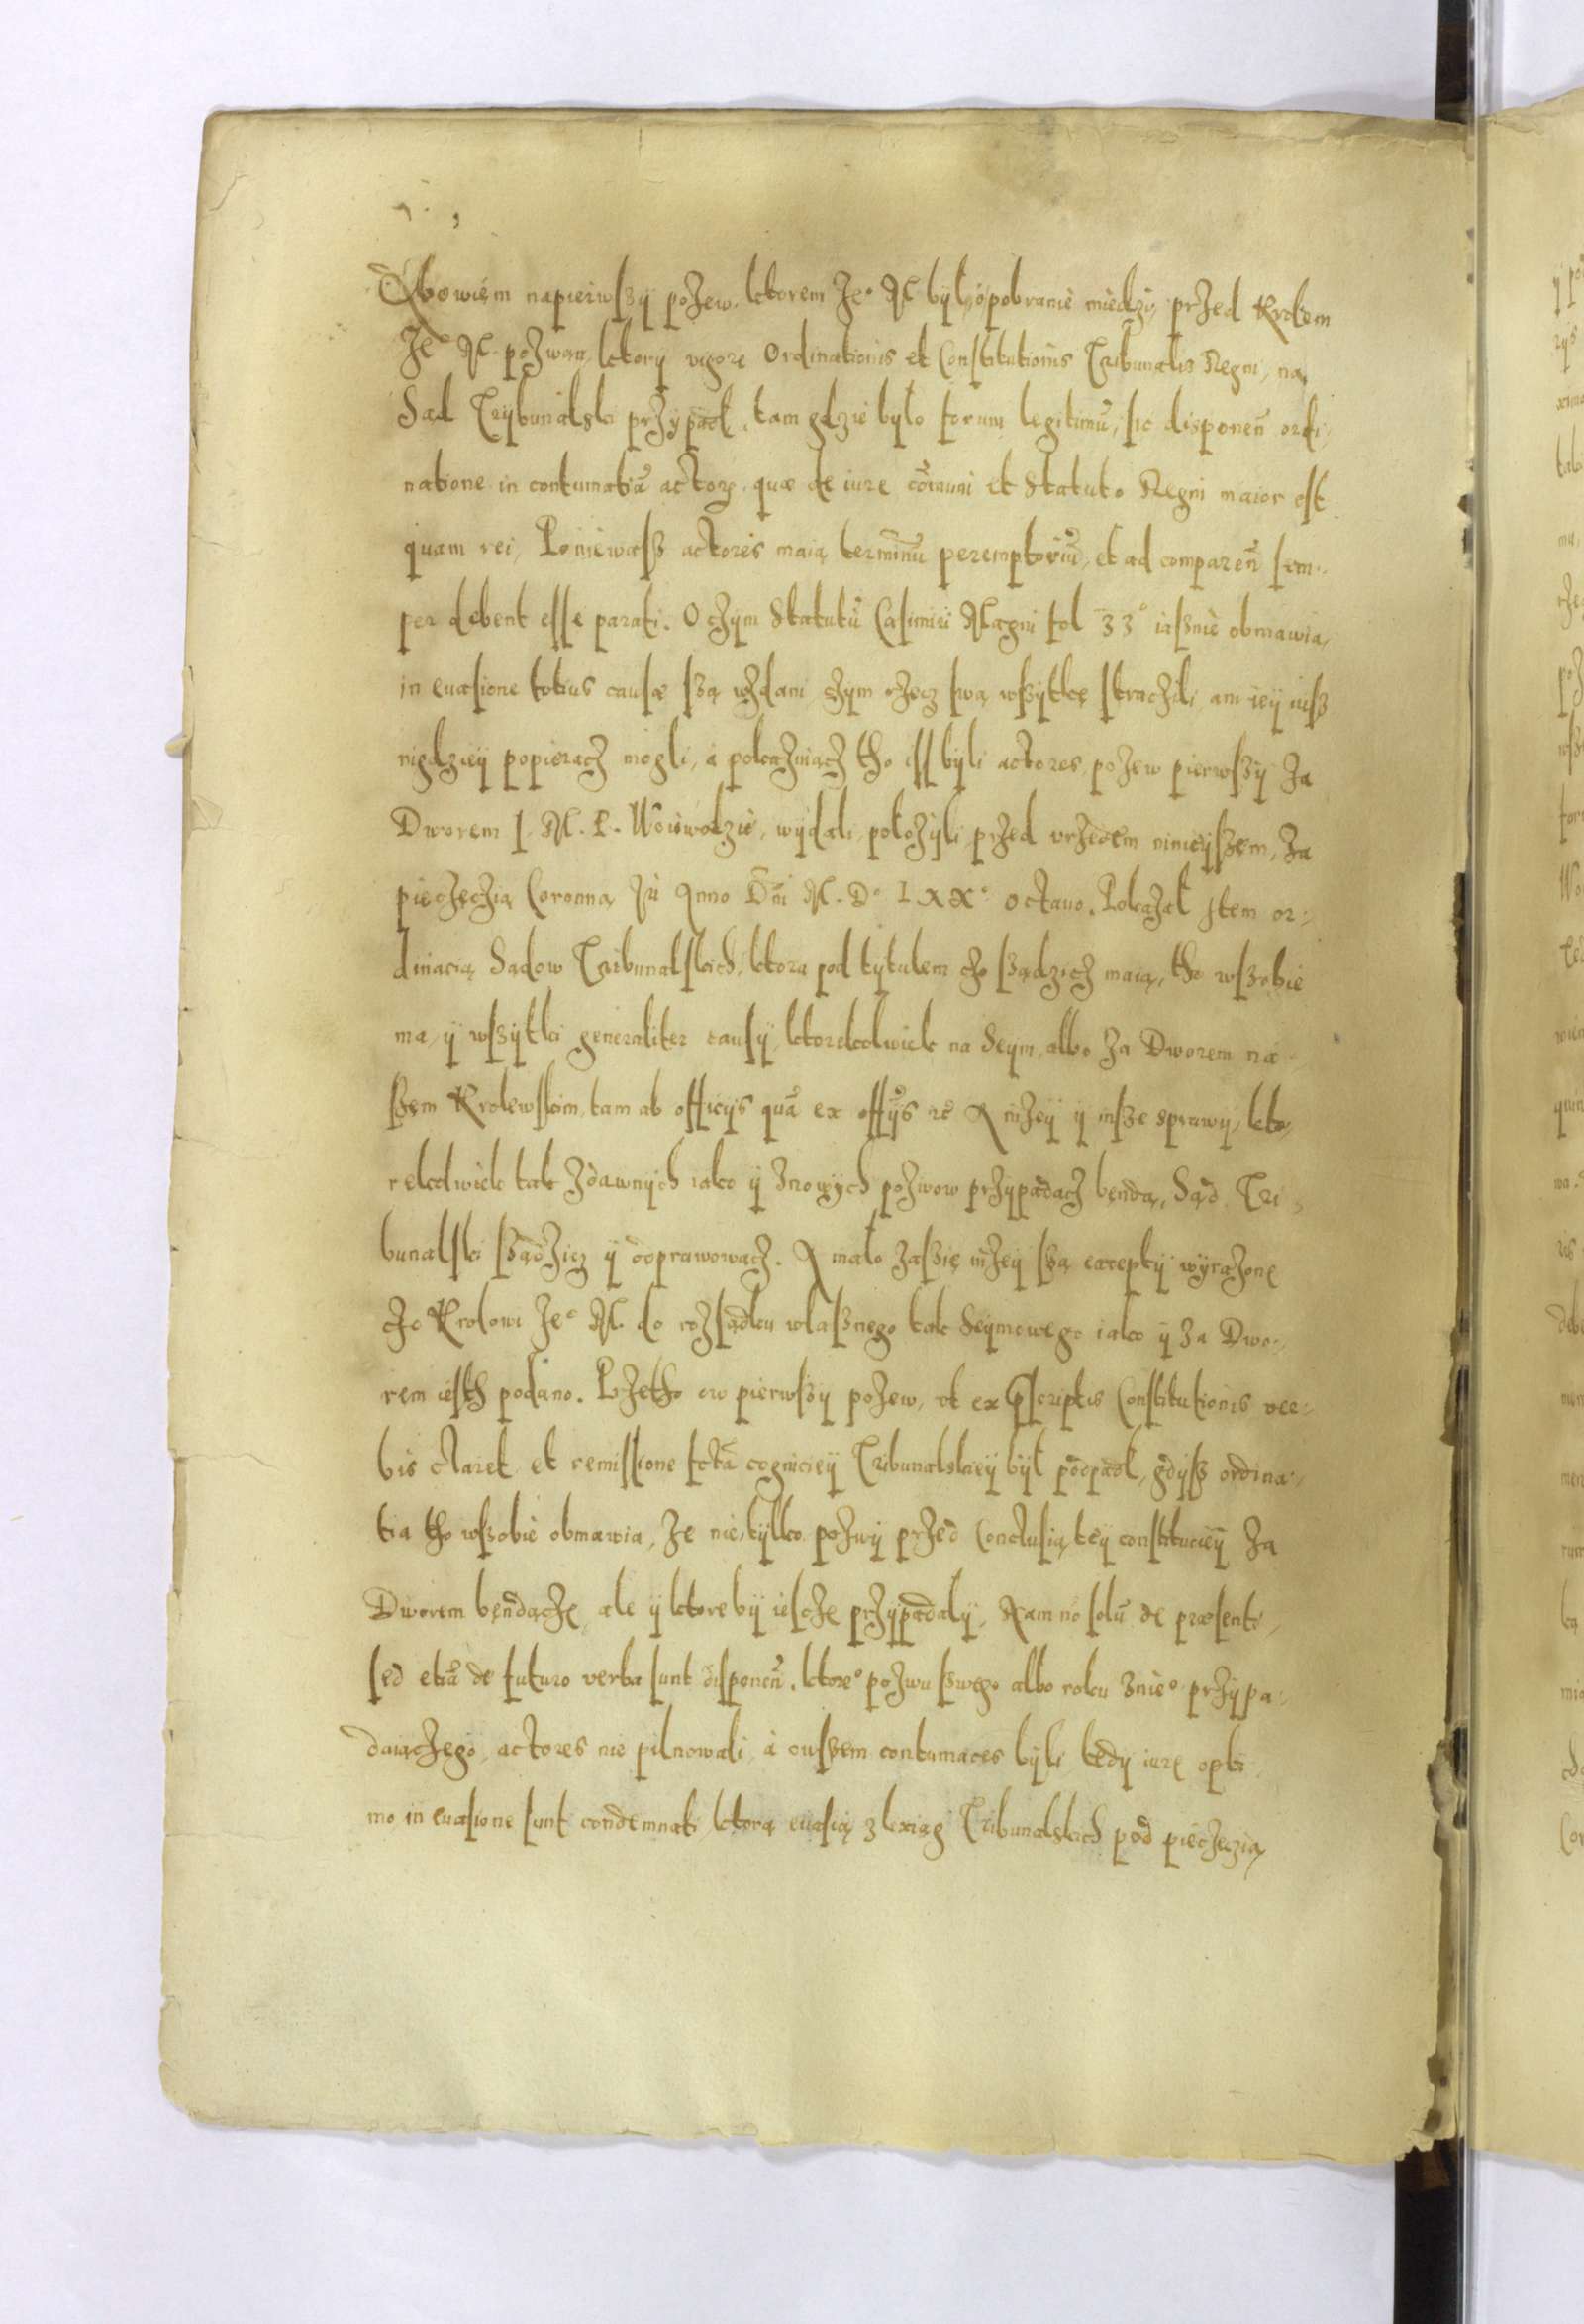 Abowiem napierwſzÿ poʒew, ktorem Je° M byl, o pobranie miedzÿ, przed Krolem
Je° M. pozwan, ktorÿ vigore Ordinationis et Conſtitutionis Tribunalis Regni, na
Sąd Trÿbunalski przÿpadł, tam gdzie było forum legitimū, ſic disponeñ ordi-
natione in contumatiā actorꝝ. quæ de iure cōmuni et Statuto Regni maior eſt
quam rei, Poniewaſz actores maią terminū peremptoriū, et ad compareñ ſem-
per debent eſſe parati. O czÿm Statutū Caſimiri Magni fol 33° iaſznie obmawia,
in euaſione totius cauſæ ſzą wzdani czÿm rzecz ſwą wſzÿtkę ſtraczili, ani ieÿ iuſz
nigdzieÿ popieracz mogli, á pokazuiącz tho iſſ bÿli actores, poʒew pierwſzÿ za
Dworem J. M. P. Woiewodzie, wÿdali, położÿli przed vrzędem ninieÿſzem, za
pieczęczią Coronną Jn Anno Dñi M. D° LXX° octauo. Pokazał Jtem or-
dinacią Sądow Tribunalſkich, ktora pod tÿtułem czo ſządzicz maią, tho wſzobie
ma, ÿ wſzÿtki generaliter cauſÿ, ktorekolwiek na Seÿm, albo za Dworem na-
ſzem Krolewſkim, tam ab officÿs quā ex offÿs rē A niżeÿ ÿ inſze sprawÿ, kto-
rekolwiek tak zdawnÿch iako ÿ znowÿch poʒwow przÿpadacz będą, Sąd Tri-
bunalſki ſządzicz ÿ odprawowacz. A mało zaſzię niżeÿ ſzą exceptÿ wÿrażone
czo Krolowi Je° M. do rozſądku wlaſznego tak Seÿmowego iako ÿ za Dwo-
rem ieſth podano. Przetho ow pierwſzÿ poʒew, vt ex pſcriptis Conſtitutionis ver-
bis claret, et remiſſione fctā cognicieÿ Tribunalskieÿ bÿł podpadł, gdÿſz ordina-
tia tho wſzobie obmawia, że nie tÿlko poʒwÿ przed Concluſią teÿ conſtitucieÿ za
Dworem będącze, ale ÿ ktore bÿ ieſcze przÿpadalÿ, Nam nō ſolū de præſenti,
ſed etiā de futuro verba ſunt diſponeñ. ktore° poʒwu ſzwego albo roku znie° przÿpa-
daiączego, actores nie pilnowali, á owſzem contumaces bÿli, tedÿ iure opti-
mo in euaſione ſunt condemnati, ktorą euaſią z kxiąg Tribunalskich pod pieczęzią